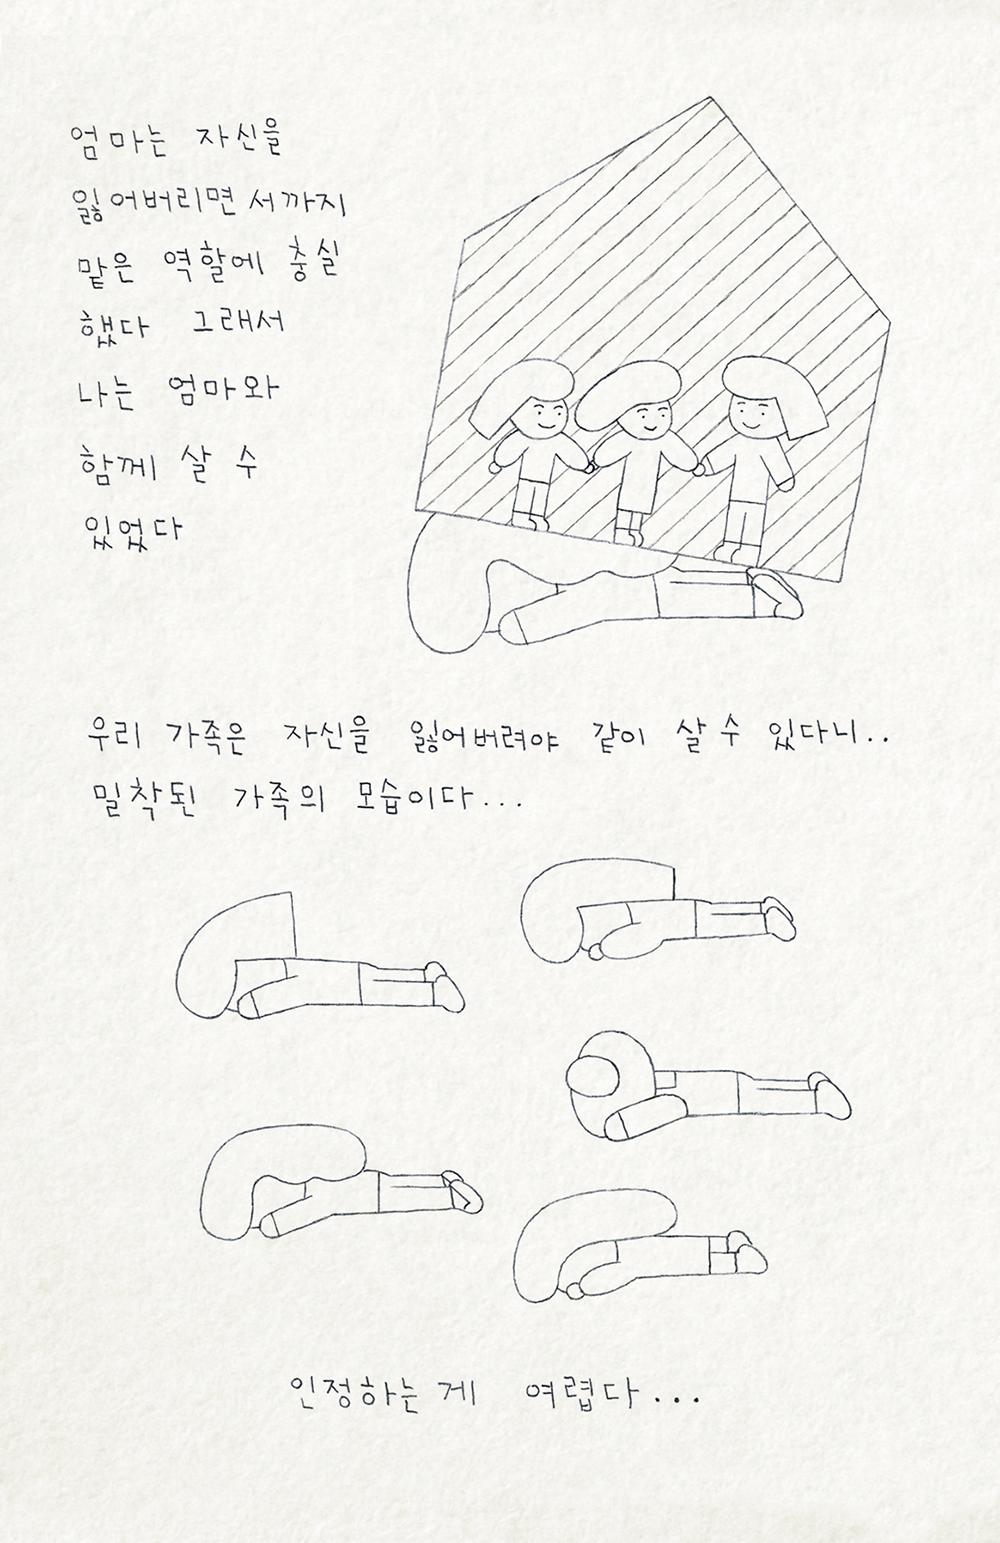 엄마는 자신을
잃어버리면서까지
맡은 역할에 충실
했다 그래서
나는 엄마와
함께 살 수
있었다
우리 가족은 자신을 잃어버려야 같이 살 수 있다니..
밀착된 가족의 모습이다...
인정하는 게 여렵다...